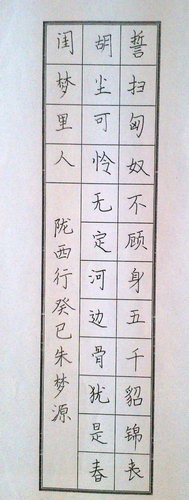 誓扫匈奴不顾身五千貂锦丧
胡尘可怜无定河边骨犹是春
闺梦里人
陇西行癸巳朱梦源